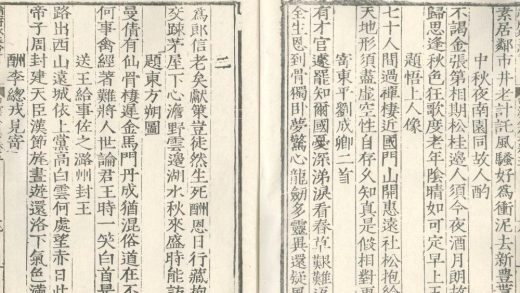 素居鄰市井老計託風騷好為衝泥去新豊
中秋夜南園同故人酌
不謁金張第相期松桂邊人須今夜酒月朗故
歸思逢秋色狂歌度老年陰晴如可定早上
題悟上人像
七十人間過禪棲近國門山開惠遠社松抱給
天地形須盡虛空性自存久知真是假相對更
寄東平劉成卿二首
有才官邃罷知爾國憂深涕淚看春草艱難
全生恩到骨獨臥夢驚心龍劒多靈異還疑風
二
為郎信老矣獻策豈徒然生死酬恩日行藏抱
交疎茅屋下心澹野雲邊湖水秋來盛時能訪
題東方朔圖
曼倩有仙骨棲遲金馬門丹成猶混俗道在不
何事禽經著難人世論君王時一笑白首是
送王給事佐之潞州封王
路出西山遠城依上黨高白雲何處望赤日此
帝子周封建天臣漢節旄晝遊還洛下氣色滿
酬李總戎見寄